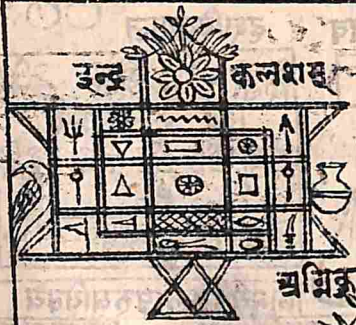 इन्द्र कलशम्
अग्निकु